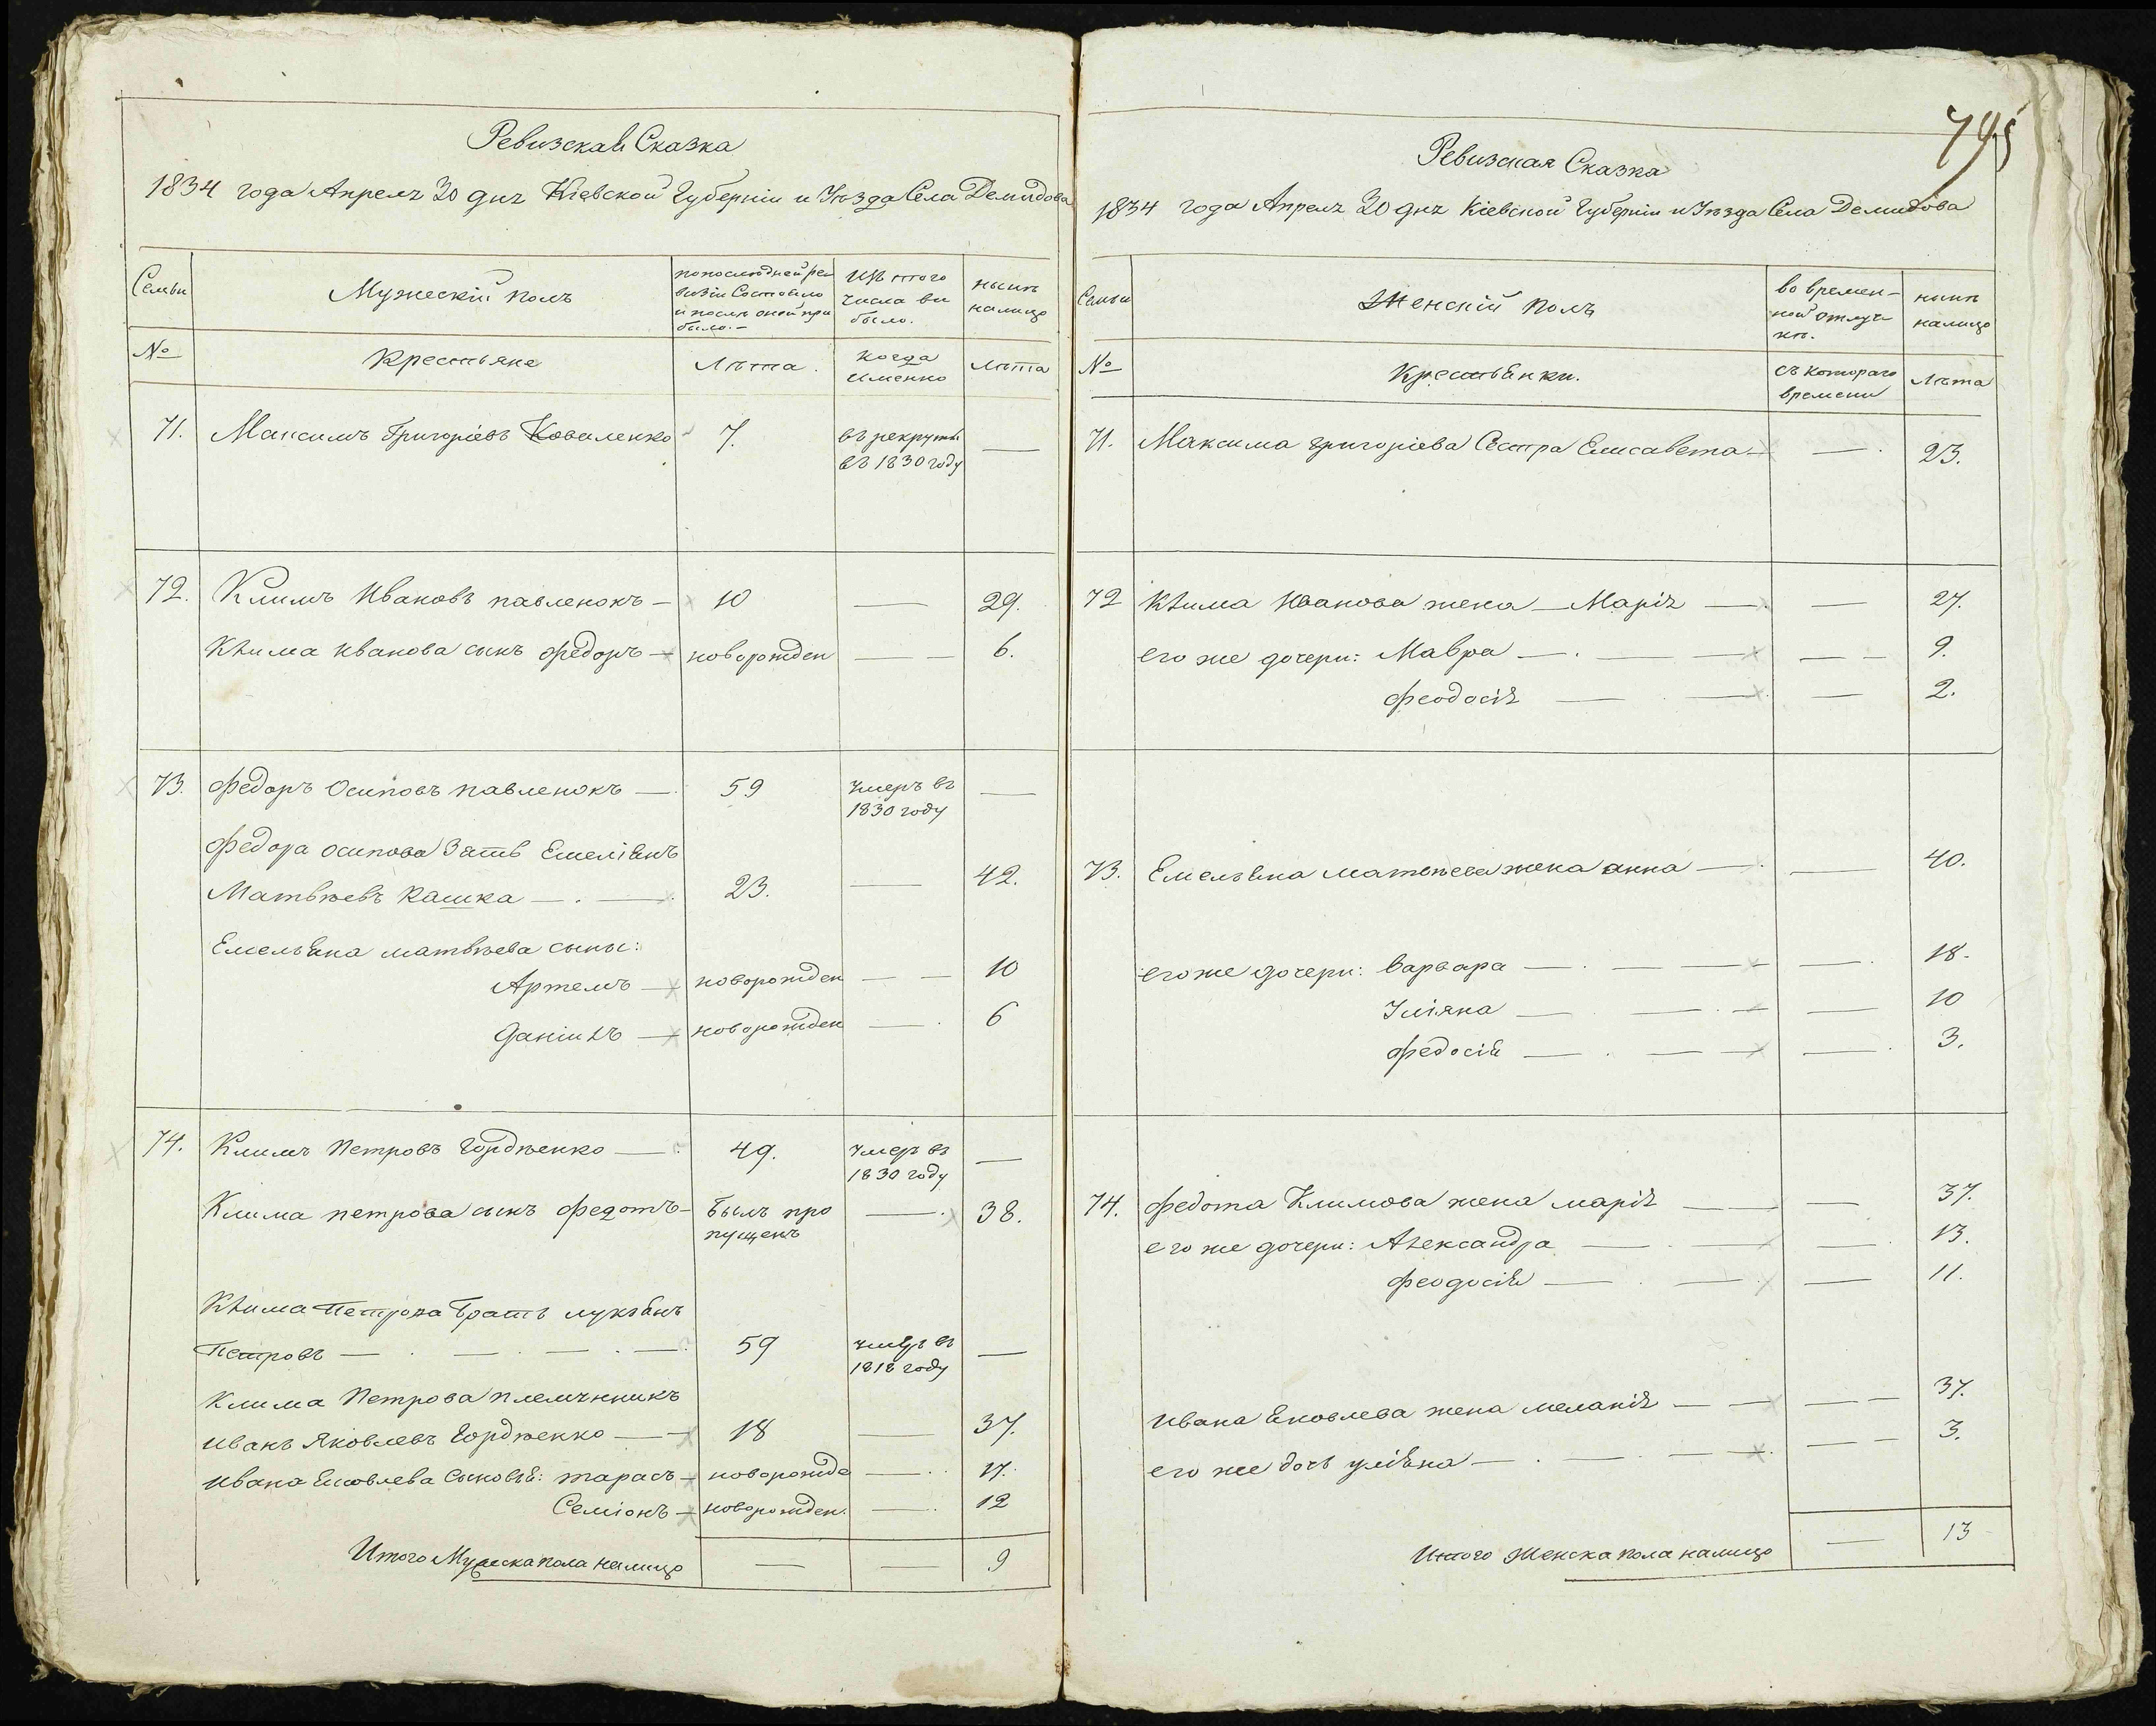 Ревизская Сказка
1834 года Апреля 30 дня Кіевской Губерніи и Уѣзда Села Демидова
Семьи
Мужескій полъ
по послѣдней ре
визіи Состояло
и послѣ оной при
было.
Изъ того
числа вы
было.
нынѣ
налицо
№
Крестьяне
Лѣта.
когда
именно
Лѣта
71. Максимъ Григоріевъ Коваленко 7. въ рекруты —
въ 1830 году
72. Климъ Ивановъ павленокъ — 10 — 29.
Клима Иванова сынъ Федоръ — новорожден — — 6.
73. Федоръ Осиповъ павленокъ — 59 Умеръ въ —
1830 году
Федора осипова Зять Емеліянъ
Матвѣевъ Кашка — . — 23. — 42.
Емельяна матвѣева сыны:
Артемъ — новорожден — — 10
Даніилъ — новорожден — . 6
74. Климъ Петровъ Гордѣенко — 49. Умеръ въ —
1830 году
Клима петрова сынъ Федотъ — Былъ про — . 38.
пущенъ
Клима Петрова Братъ лукьянъ
Петровъ — . — . — . — 59 Умеръ въ —
1818 году
Клима Петрова племянникъ
иванъ Яковлевъ Гордѣенко — — 18 — 37.
ивана Яковлева Сыновья: тарасъ — новорожде — . 17.
Семіонъ — новорожден. — . 12
Итого Мужеска пола налицо — — 9
795
Ревизская Сказка
1834 года Апреля 30 дня Кіевской Губерніи и Уѣзда Села Демидова
Семьи
Женскій полъ
во времен-
ной отлуч-
кѣ.
нынѣ
налицо
№
Крестьянки.
съ котораго
времени
Лѣта
71. Максима григоріева Сестра Елисавета — — . 23.
72 Клима Иванова жена — Марія — — 27.
его же дочери: Мавра — . — — — — 9.
Феодосія — . — — 2.
73. Емельяна матвѣева жена анна — . — 40.
его же дочери: варвара — . — — — . 18.
Уліяна — . — . — — 10
Федосія — . — — — . 3.
74. Федота Климова жена марія — — — 37.
его же дочери: Александра — . — — . 13.
Феодосія — . — . — 11.
ивана Яковлева жена меланія — — — — 37.
его же дочь уліяна — . — . — — — — 3.
Итого Женска пола налицо — 13